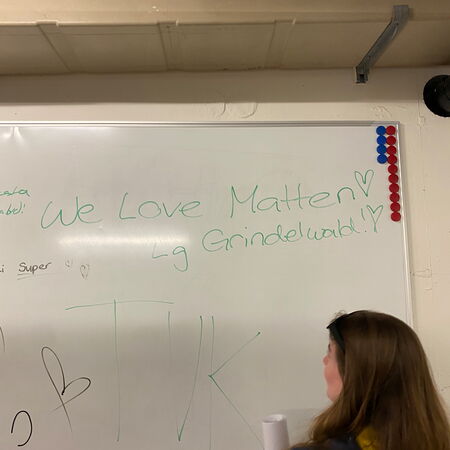 We Love Matten
Lg Grindelwald!
Super
TVK